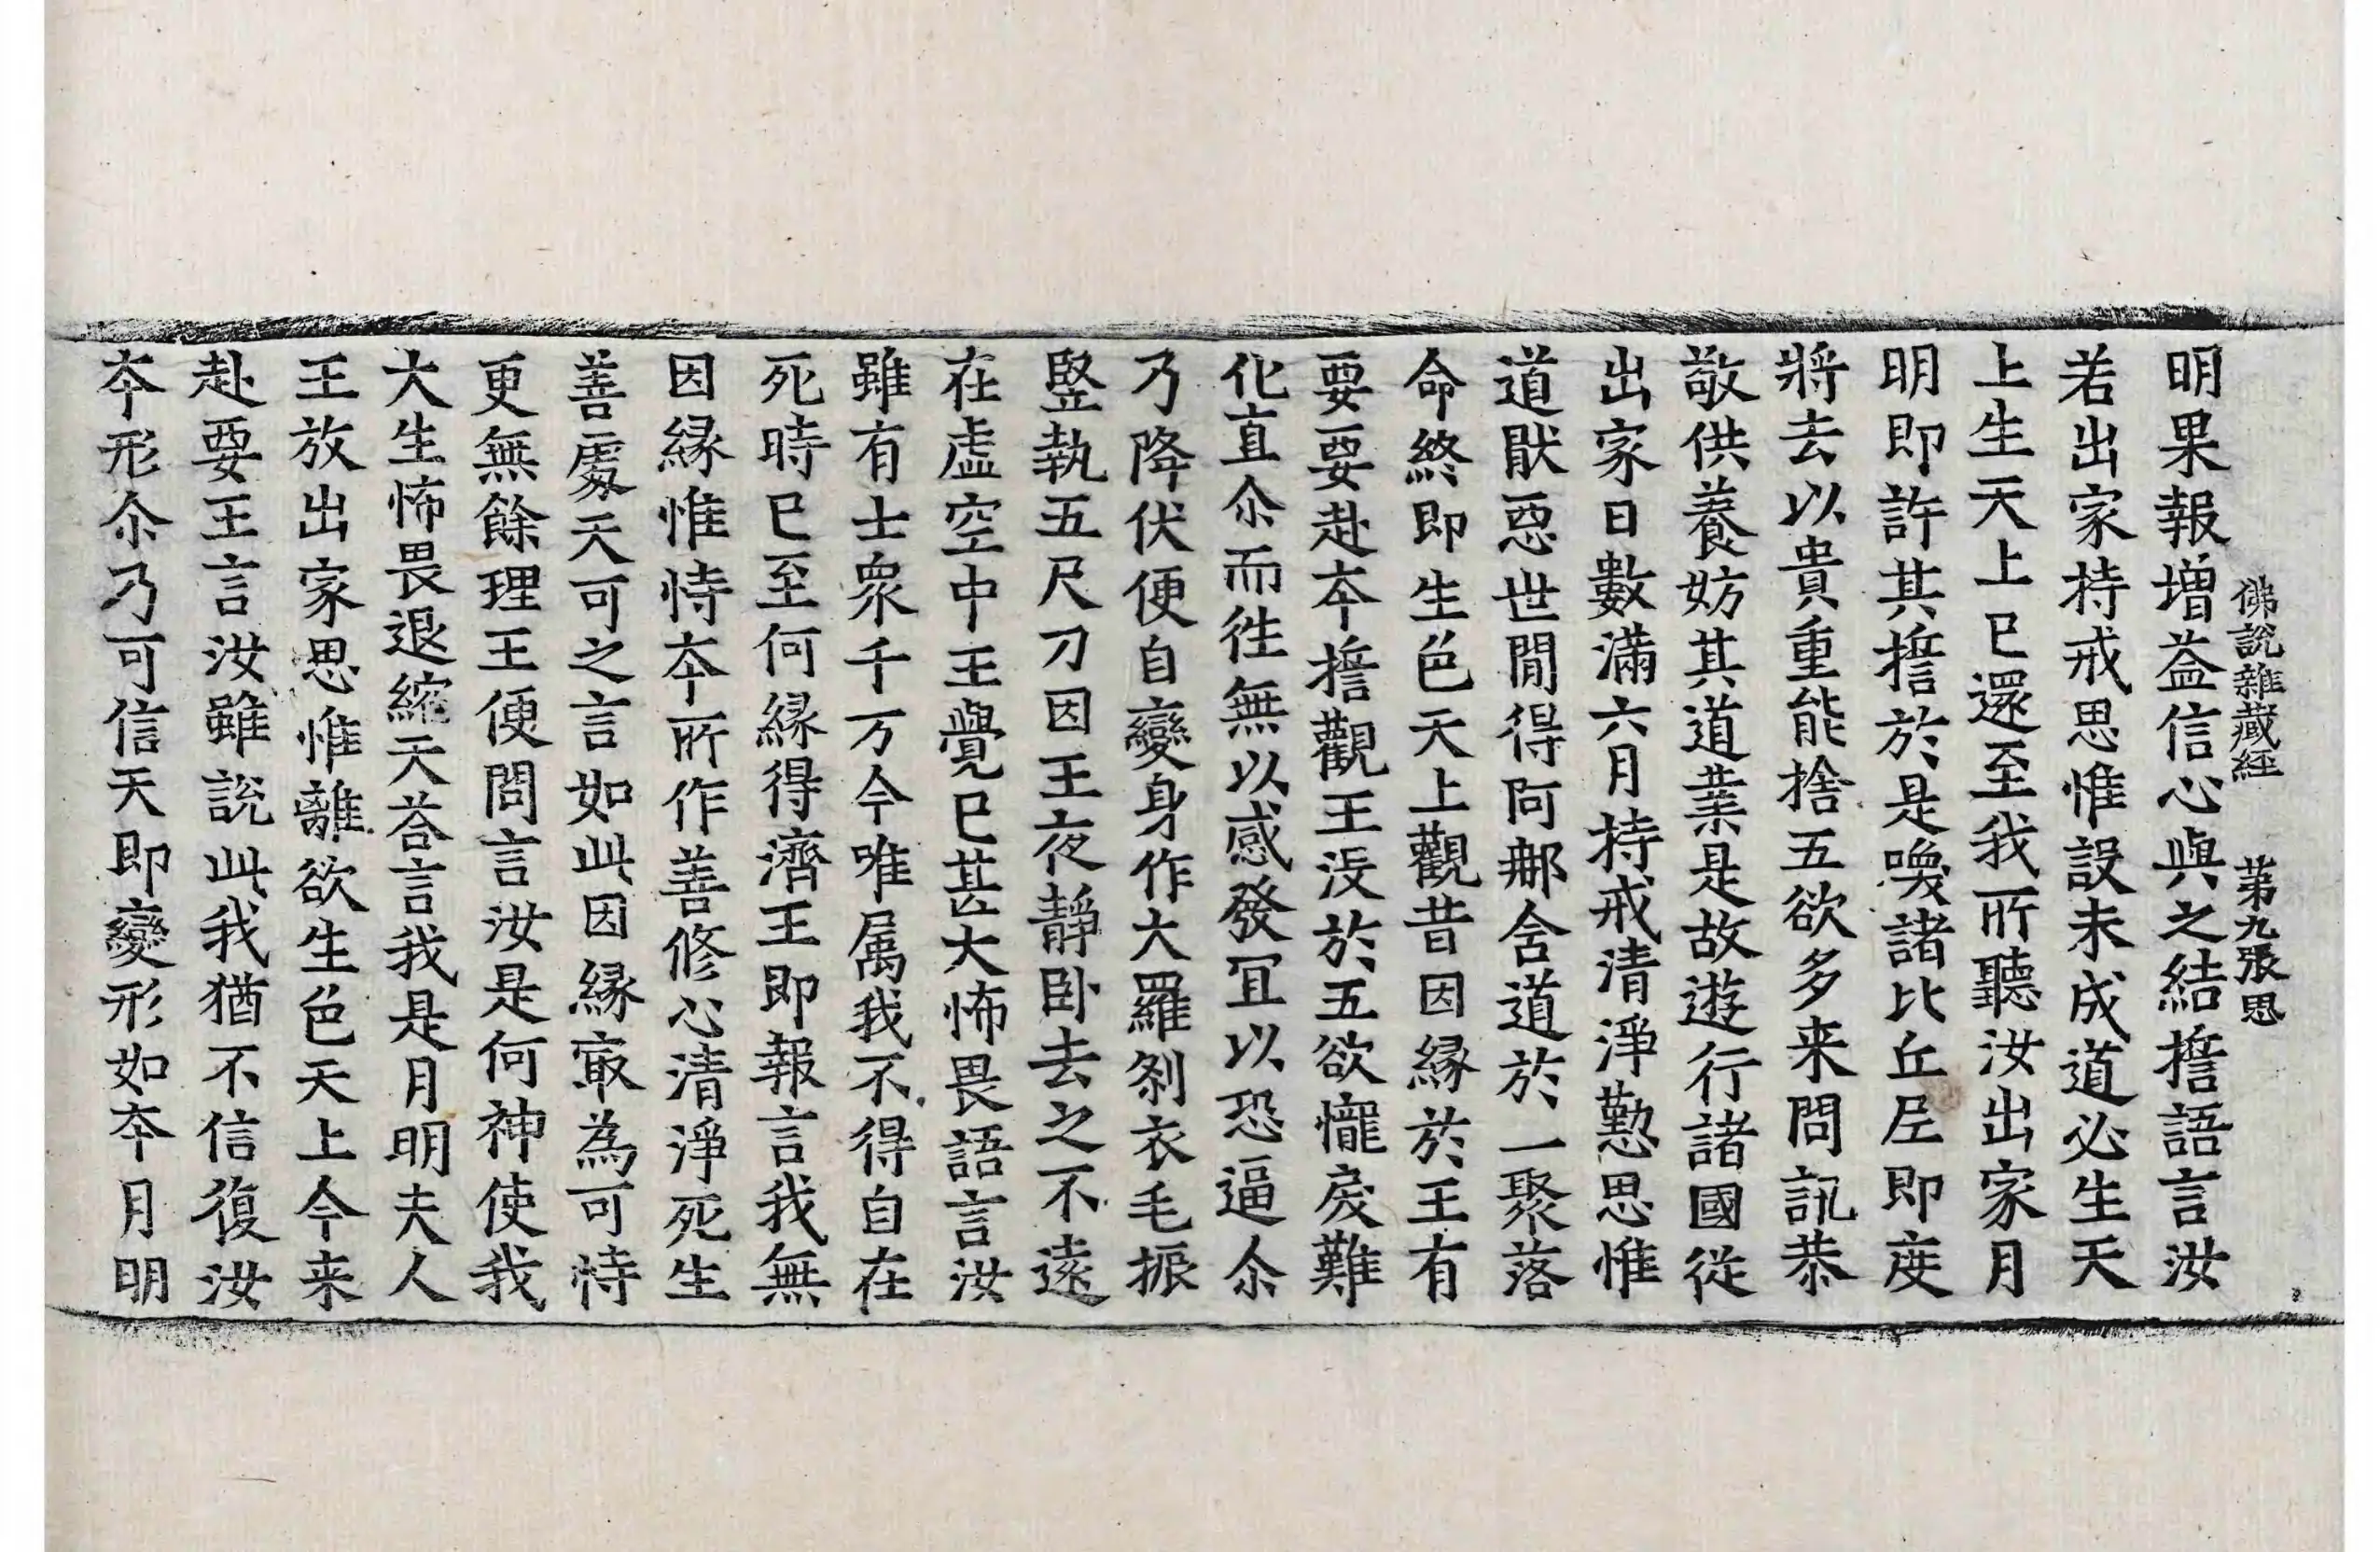 佛說雜藏經 第九張 思
明果報增益信心與之結擔語言汝
若出家持戒思惟設未成道必生天
上生天上已還至我所聽汝出家月
明即許其擔於是喚諸比丘尼即度
將去以貴重能捨五欲多来問訊恭
敬供養妨其道業是故遊行諸國從
出家日數滿六月持戒清淨懃思惟
道猒惡世閒得阿那舍道於一聚落
命終即生色天上觀昔因緣於王有
要要赴夲擔觀王没於五欲𢤱戾難
化直尒而徃無以感發冝以恐逼尒
乃降伏便自變身作大羅剎衣毛振
竪執五尺刀因王夜靜卧去之不遠
在虛空中王覺已甚大怖畏語言汝
雖有士衆千万今唯属我不得自在
死時已至何緣得濟王即報言我無
因緣惟恃夲所作善修心清淨死生
善處天可之言如此因緣㝡為可恃
更無餘理王便問言汝是何神使我
大生怖畏退縮天荅言我是月明夫人
王放出家思惟離欲生色天上今来
赴要王言汝雖說此我猶不信復汝
夲形尒乃可信天即變形如夲月明